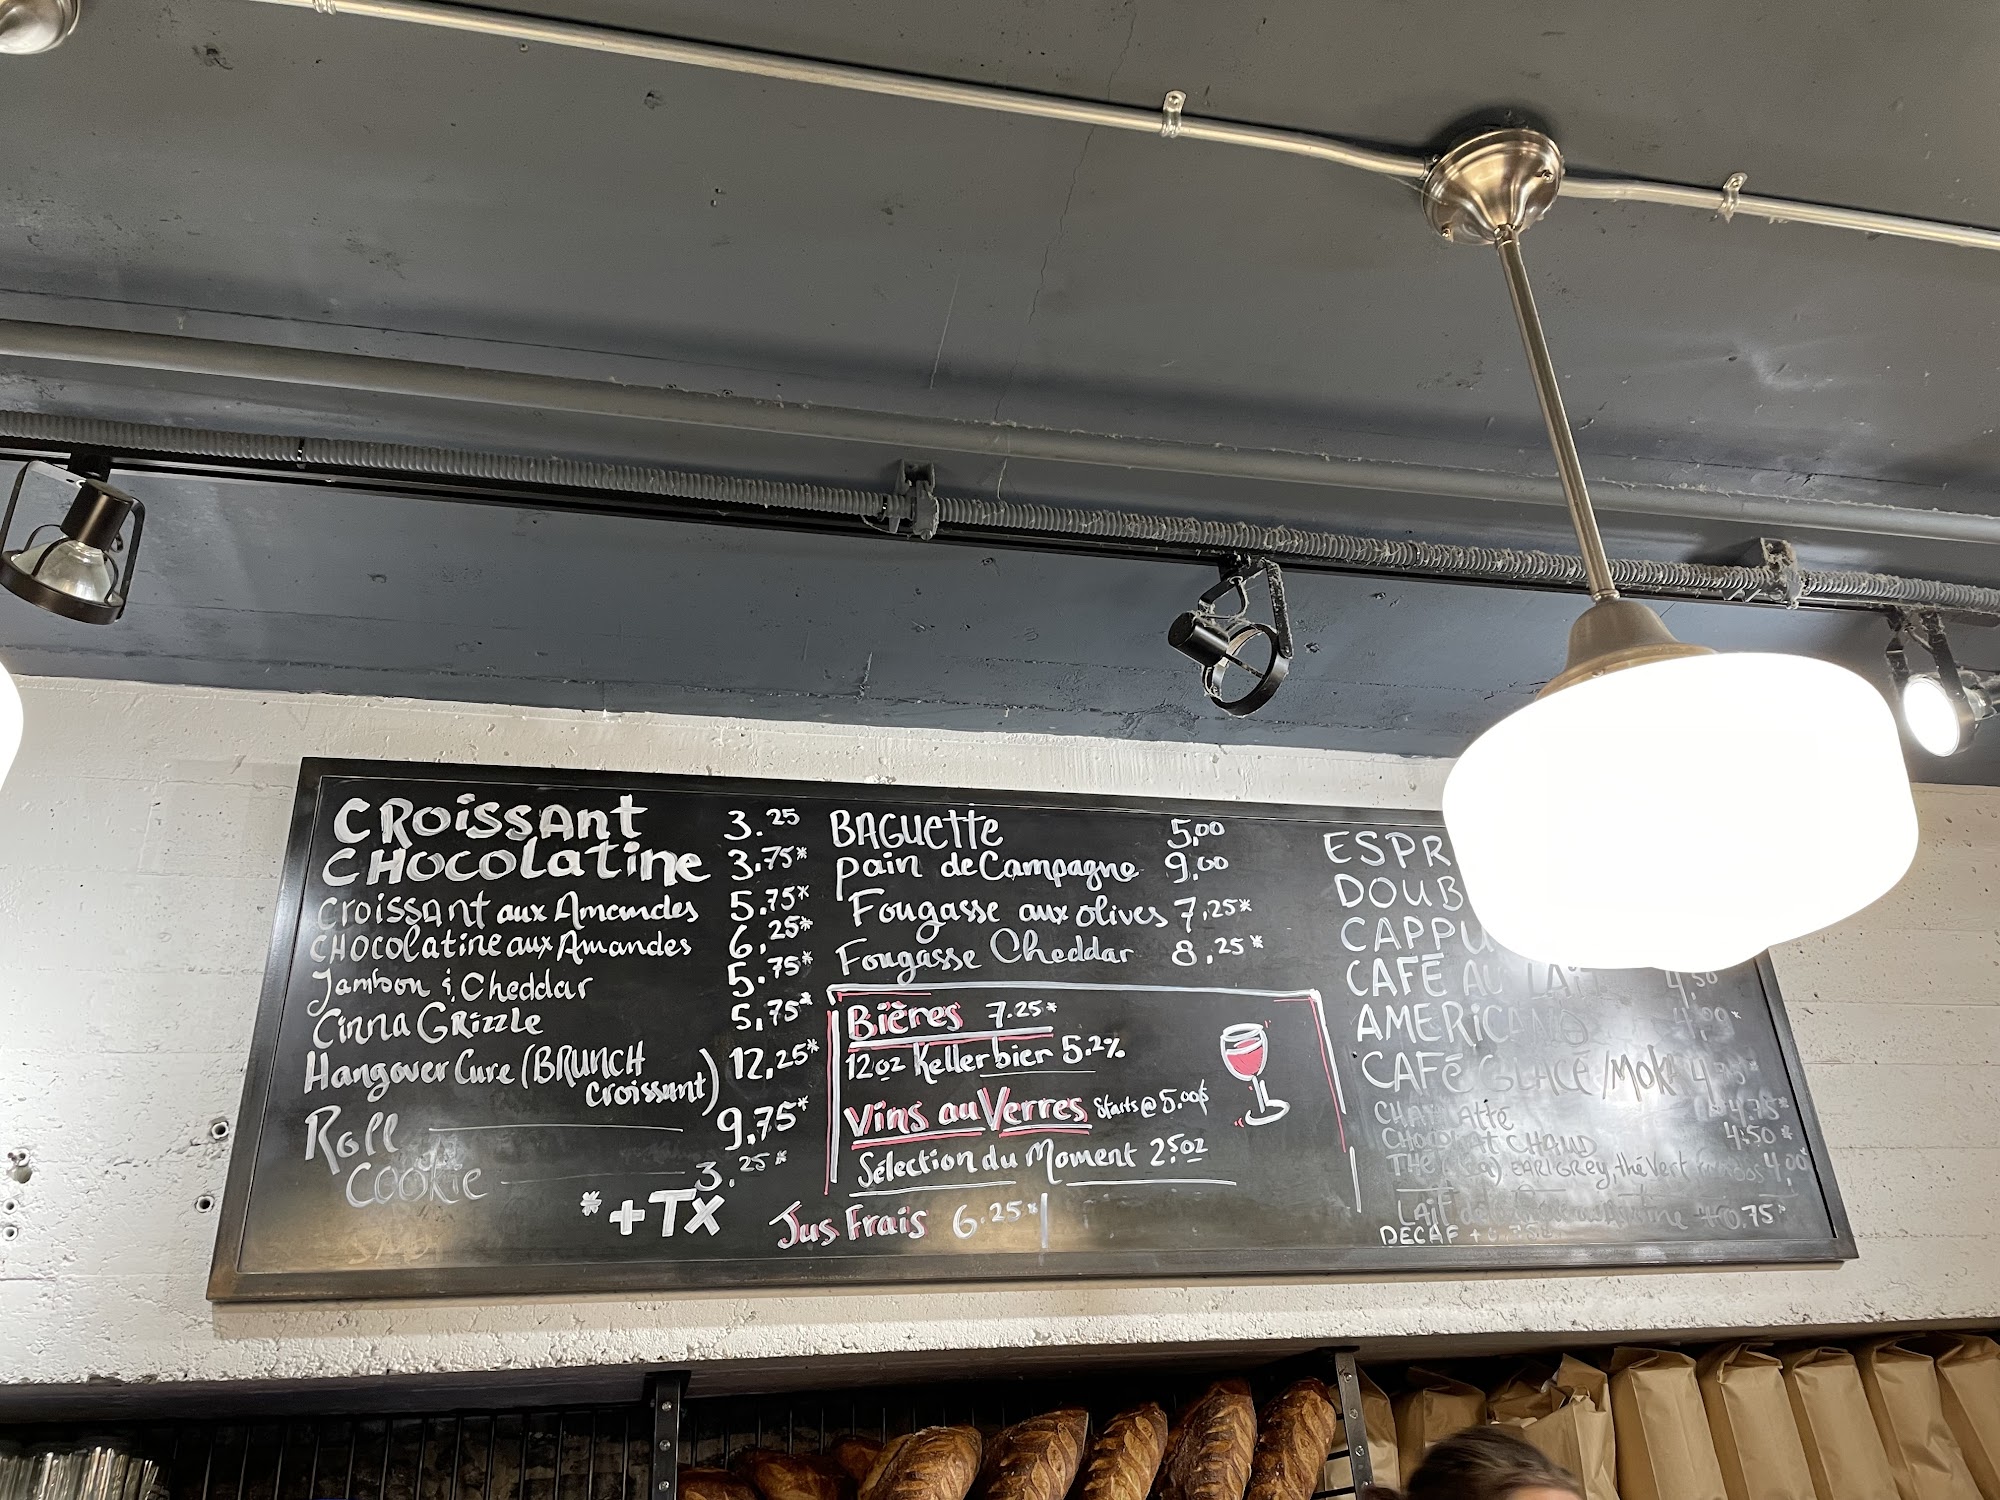 CROISSANT 3.25
CHOCOLATINE 3.75*
CROISSANT aux Amandes 5.75*
CHOCOLATINE aux Amandes 6.25*
Jambon & Cheddar 5.75*
Cinna GRizzle 5.75*
Hangover Cure (BRUNCH croissant) 12.25*
Roll 9.75*
Cookie 3.25*
*+TX
BAGUETTE 5.00
Pain de Campagne 9.00
Fougasse aux olives 7.25*
Fougasse Cheddar 8.25*
Bières 7.25*
12oz Kellerbier 5.2%
Vins au Verres Starts @ 5.00$
Sélection du Moment 2.5oz
Jus Frais 6.25*
ESPR
DOUB
CAPPU
CAFÉ AU LAIT 4.50
AMERICANO
CAFÉ GLACÉ / MOKA
CHAI LATTE 4.75*
CHOCOLAT CHAUD 4.50*
THÉ EARL GREY, thé Vert 4.00*
LAIT 0.75*
DECAF